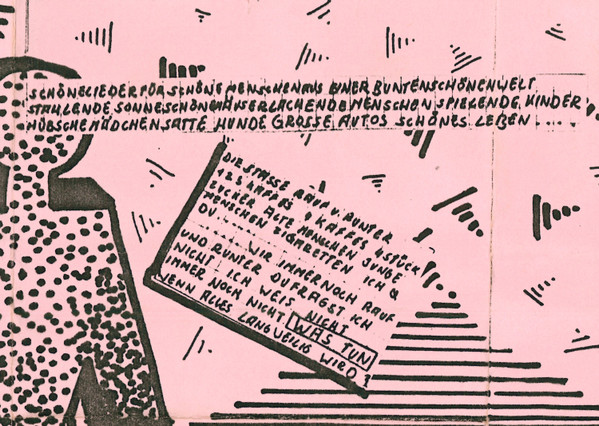 SCHÖNE LIEDER FÜR SCHÖNE MENSCHEN AUS EINER BUNTEN SCHÖNEN WELT
STAHLENDE SONNE SCHÖNE HÄUSER LACHENDE MENSCHEN SPIELENDE KINDER
HÜBSCHE MÄDCHEN SATTE HUNDE GROSSE AUTOS SCHÖNES LEBEN ....
DIE STRASSE RAUF U. RUNTER
1 2 3 KAFFES 1 KAFFES 4 STÜCK
ZUCKER ALTE MENSCHEN JUNGE
MENSCHEN ZIGARETTEN ICH &
DU ........ WIR IMMER NOCH RAUF
UND RUNTER DU FRAGST ICH
NICHT ICH WEIS NICHT
IMMER NOCH NICHT WAS TUN
WENN ALLES LANGWEILIG WIRD?